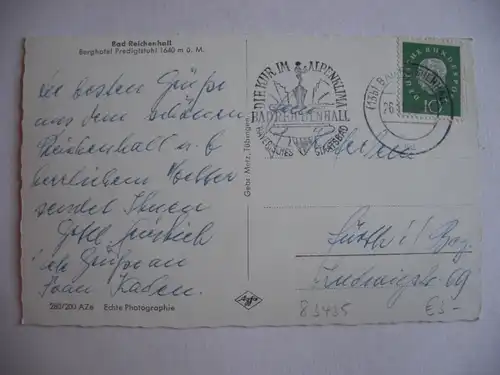 Bad Reichenhall
Berghotel Predigtstuhl 1640 m ü. M.
Die besten Grüße
aus dem schönen
Reichenhall u. b.
herrlichem Wetter
sendet Ihnen
Grüße an
Frau Kaden.
280/200 AZe Echte Photographie
Gebr. Metz, Tübingen
Agfa
DIE KUR IM ALPENKLIMA
BAD REICHENHALL
BAYERISCHES STAATSBAD
DEUTSCHE BUNDESPOST
10
Fürth i/Bay.
Ludwigstr. 69
83435 €3-